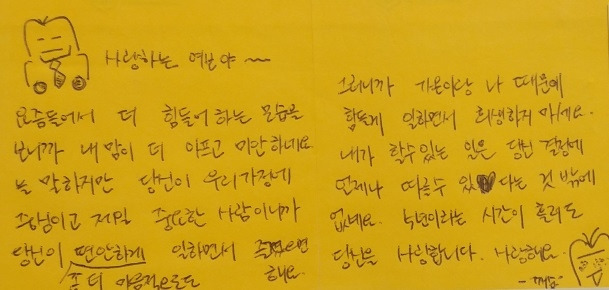 사랑하는 여보야~~
요즘들어서 더 힘들어 하는 모습을
보니까 내 맘이 더 아프고 미안하네요
늘 말하지만 당신이 우리가정에
중심이고 제일 중요한 사람이니까
당신이 편안하게 일하면서
좀 더 마음적으로도 해요.
그러니까 가온이랑 나 때문에
힘들게 일하면서 희생하지 마세요.
내가 할수 있는 일은 당신 결정에
언제나 따를수 있다는 것 밖에
없네요. 녹년이라는 시간이 흘러도
당신을 사랑합니다. 사랑해요.